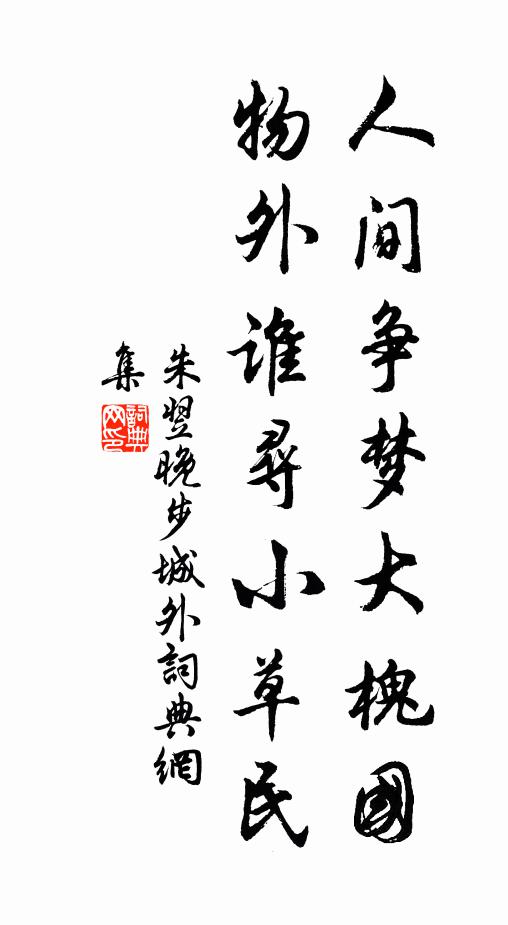 人间争梦大槐國
物外谁尋小草民
朱翌晚步城外詞典網
集
詞典网印